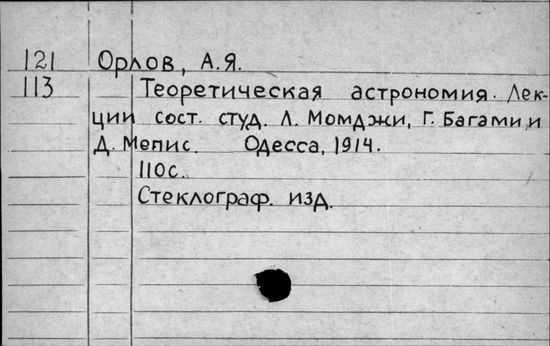 121 Орлов, А.Я.
113 Теоретическая астрономия. Лек-
ции сост. студ. Л. Момджи, Г. Багами и
Д. Мепис. Одесса, 1914.
110с.
Стеклограф. изд.